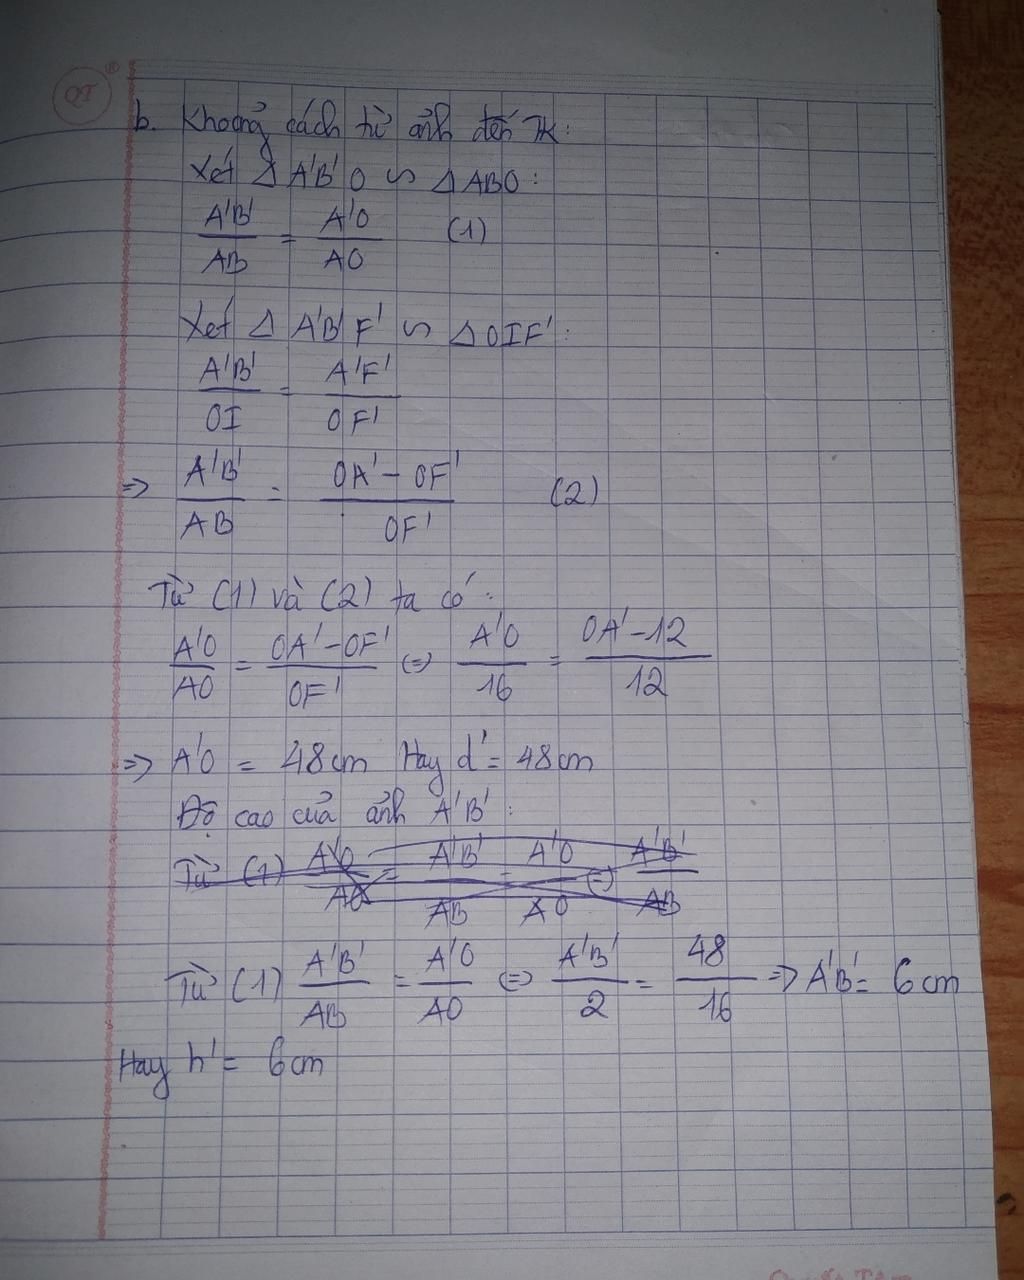 QT
b. Khoảng cách từ ảnh đến TK:
Xét Δ A'B'O ∽ Δ ABO:
A'B'/AB = A'O/AO (1)
Xét Δ A'B'F' ∽ Δ OIF':
A'B'/OI = A'F'/OF'
=> A'B'/AB = OA' - OF'/OF' (2)
Từ (1) và (2) ta có:
A'O/AO = OA' - OF'/OF' <=> A'O/16 = OA' - 12/12
=> A'O = 48cm Hay d' = 48cm
Độ cao của ảnh A'B':
Từ (1) A'O/AO = A'B'/AB = A'O/AO <=> A'B'/AB
Từ (1) A'B'/AB = A'O/AO <=> A'B'/2 = 48/16 => A'B' = 6cm
Hay h' = 6cm